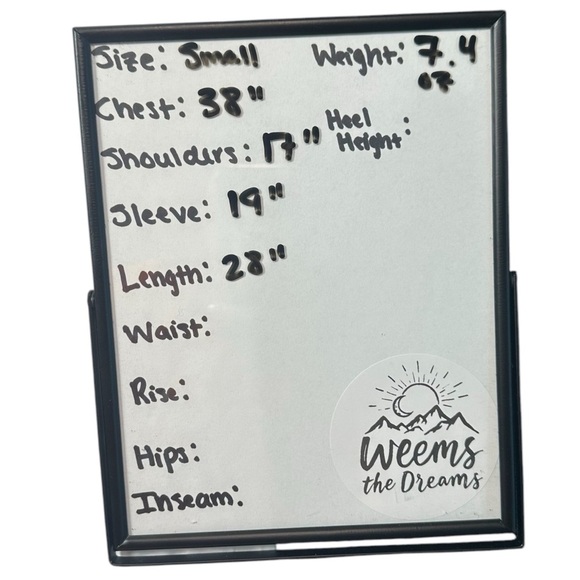 Size: Small
Chest: 38"
Shoulders: 17"
Sleeve: 19"
Length: 28"
Waist:
Rise:
Hips:
Inseam:
Weight: 7.4
oz
Heel
Height:
Weems
the Dreams